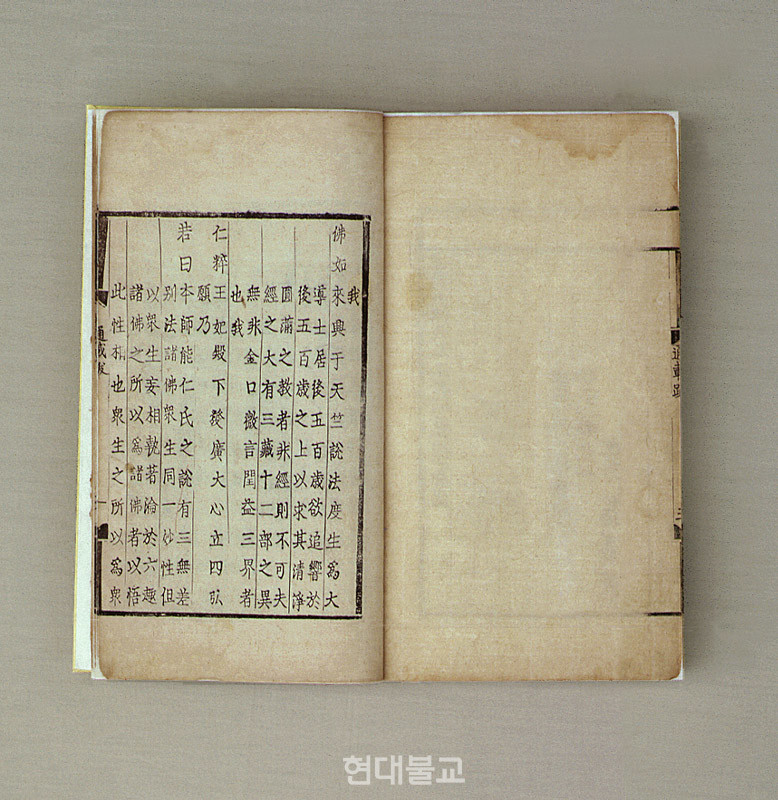 通載跋
二
我
佛如來興于天竺說法度生爲大
導士居後五百歲欲追響於
後五百歲之上以求其清淨
圓滿之敎者非經則不可夫
經之大有三藏十二部之異
無非金口微言閏益三界者
也我
仁粹王妃殿下發廣大心立四弘
願乃
若曰本師能仁氏之說有三無差
别法諸佛衆生同一妙性但
以衆生妄相執著淪於六趣
諸佛之所以爲諸佛者以悟
此性相也衆生之所以爲衆
通載跋
一
현대불교